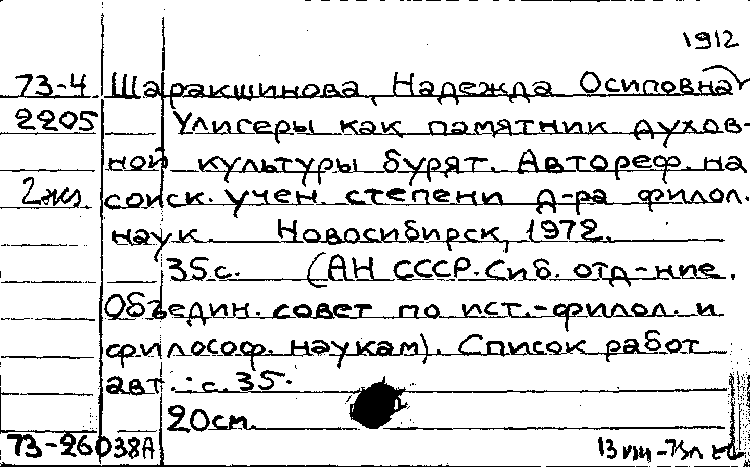 1912
73-4 Шаракшинова, Надежда Осиповна
2205 Улигеры как памятник духов-
ной культуры бурят. Автореф. на
2 экз. соиск. учен. степени д-ра филол.
наук. Новосибирск, 1972.
35 с. (АН СССР. Сиб. отд-ние.
Объедин. совет по ист.-филол. и
философ. наукам). Список работ
авт.: с. 35.
20 см.
73-26038А 13 VIII-73